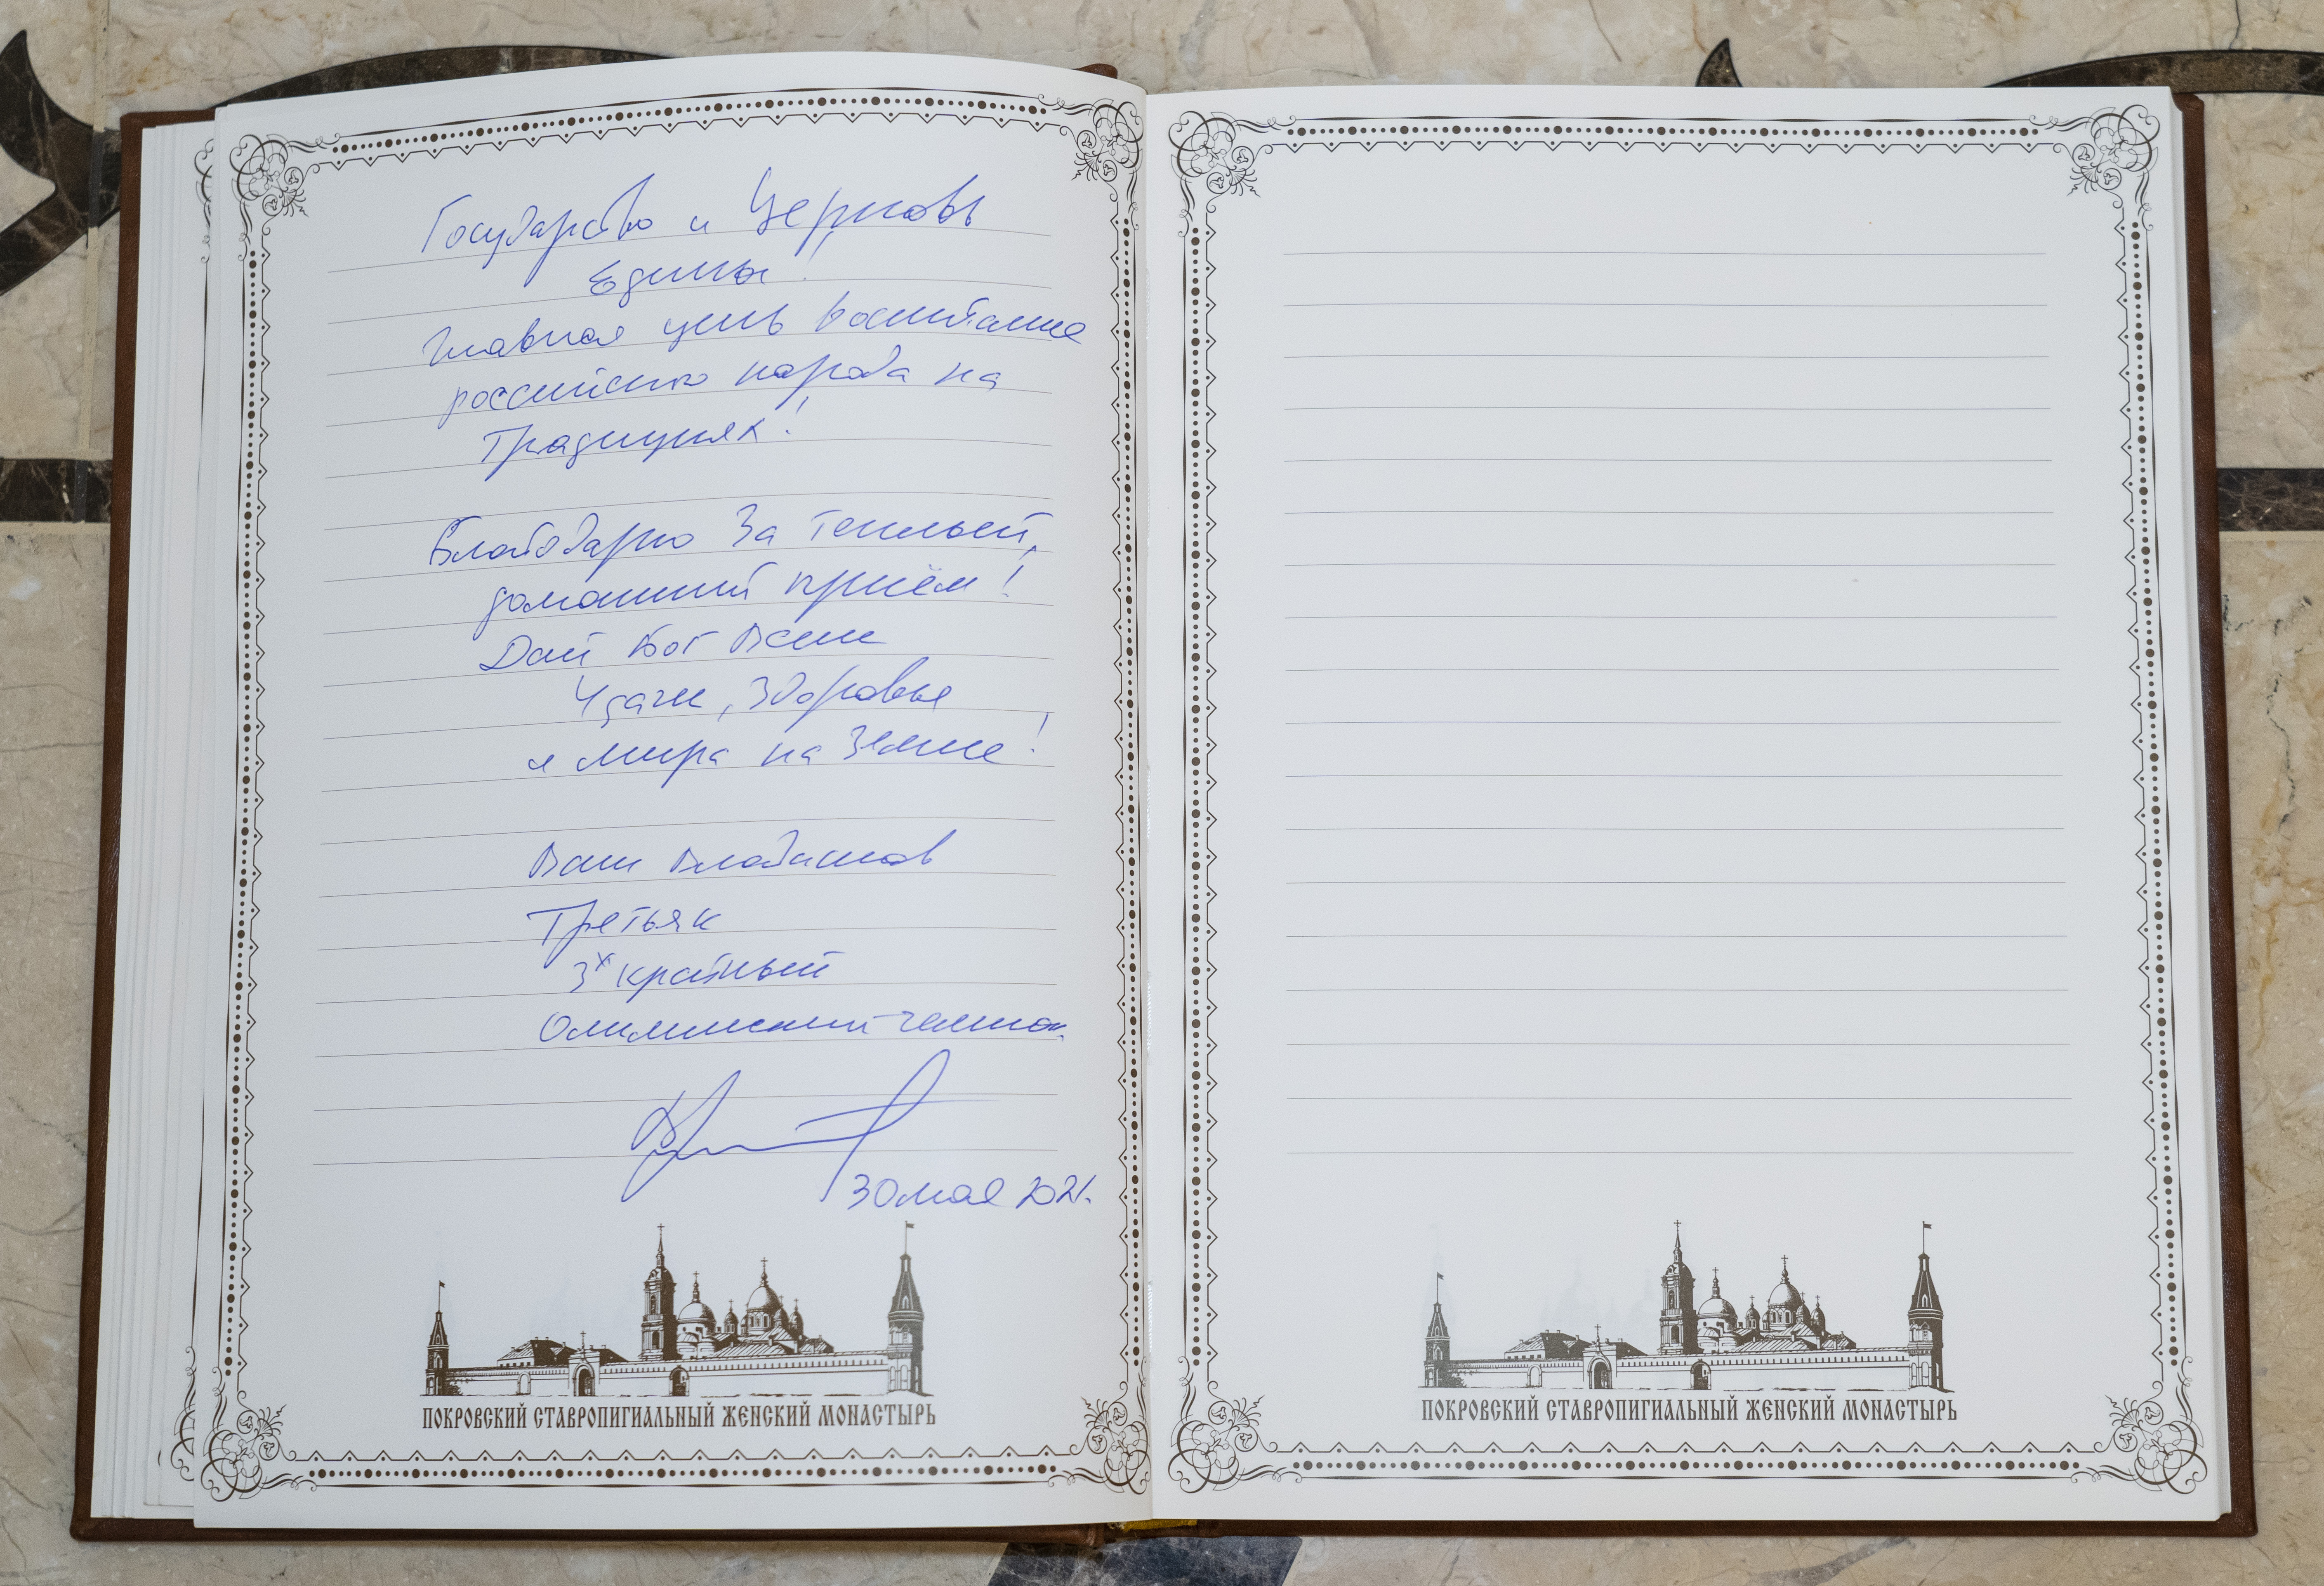 Государство и Церковь
Едины!
Главная цель воспитание
российского народа на
Традициях!
Благодарю За теплый,
домашний приём!
Дай Бог Вам
Удачи, Здоровья
и мира на Земле!
Ваш Владислав
Третьяк
3х кратный
Олимпийский чемпион.
30 мая 2021.
ПОКРОВСКИЙ СТАВРОПИГИАЛЬНЫЙ ЖЕНСКИЙ МОНАСТЫРЬ
ПОКРОВСКИЙ СТАВРОПИГИАЛЬНЫЙ ЖЕНСКИЙ МОНАСТЫРЬ